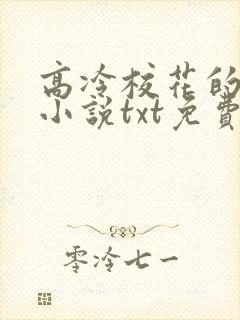 高冷校花的
小説txt免費
零冷七一